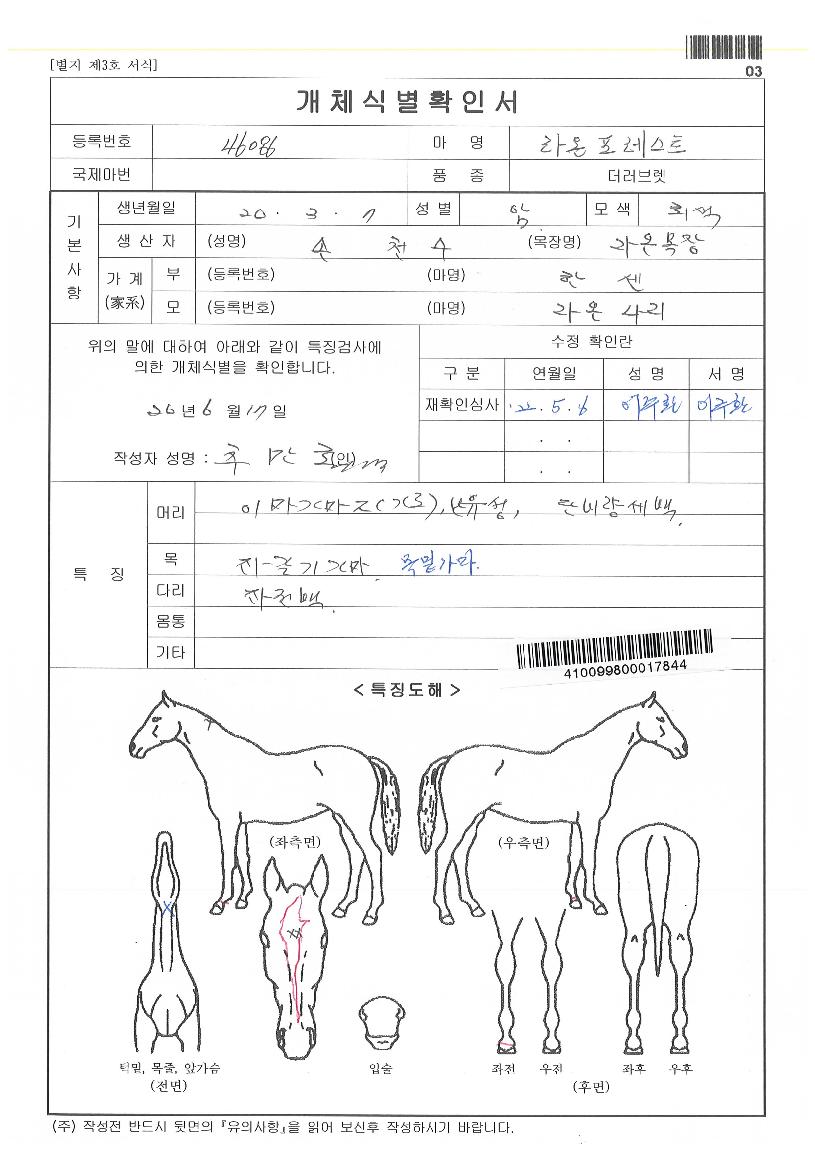 03
[별지 제3호 서식]
개체식별확인서
등록번호 46086 마 명 라온포레스트
국제마번 품 종 더러브렛
기본사항
생년월일 20. 3. 7 성별 암 모색 회색
생산자 (성명) 손 천 수 (목장명) 라온목장
가계 (家系) 부 (등록번호) (마명) 한 센
모 (등록번호) (마명) 라온사리
위의 말에 대하여 아래와 같이 특징검사에
의한 개체식별을 확인합니다.
20년 6월 17일
작성자 성명 : (인)
수정 확인란
구분 연월일 성명 서명
재확인심사 22. 5. 6 이주환 이주환
. .
. .
특징
머리
목 목밑가마.
다리 좌전백.
몸통
기타
410099800017844
< 특징도해 >
(좌측면) (우측면)
턱밑, 목줄, 앞가슴 입술 좌전 우전 좌후 우후
(전면) (후면)
(주) 작성전 반드시 뒷면의 『유의사항』을 읽어 보신후 작성하시기 바랍니다.